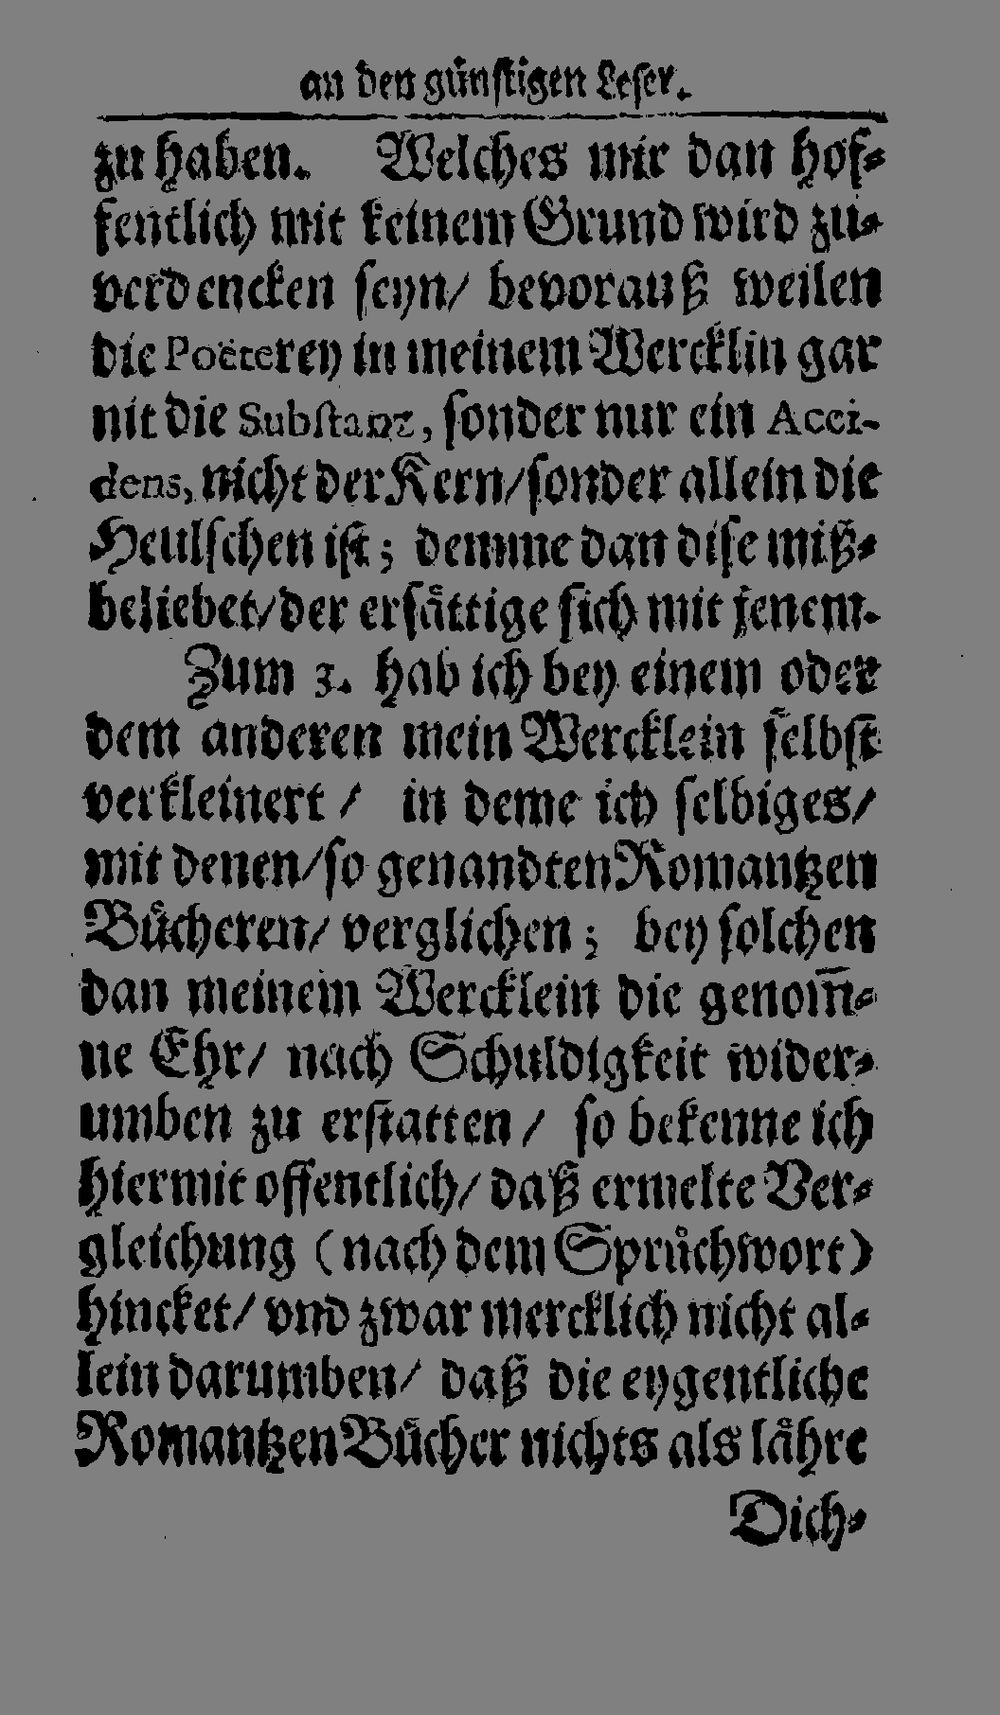 an den gůnſtigen Leſer.
zu haben. Welches mir dan hof⸗
fentlich mit keinem Grund wird zu⸗
verdencken ſeyn/ bevorauß weilen
die Poëterey in meinem Wercklin gar
nit die Subſtanz, ſonder nur ein Acci-
dens, nicht der Kern/ ſonder allein die
Heulſchen iſt; demme dan diſe miß⸗
beliebet/ der erſåttige ſich mit jenem.
Zum 3. hab ich bey einem oder
dem anderen mein Wercklein ſelbſt
verkleinert/ in deme ich ſelbiges/
mit denen/ ſo genandten Romantzen
Bůcheren/ verglichen; bey ſolchen
dan meinem Wercklein die genom̃⸗
ne Ehr/ nach Schuldigkeit wider⸗
umben zu erſtatten/ ſo bekenne ich
hiermit offentlich/ daß ermelte Ver⸗
gleichung (nach dem Sprůchwort)
hincket/ vnd zwar mercklich nicht al⸗
lein darumben/ daß die eygentliche
Romantzen Bůcher nichts als låhre
Dich⸗